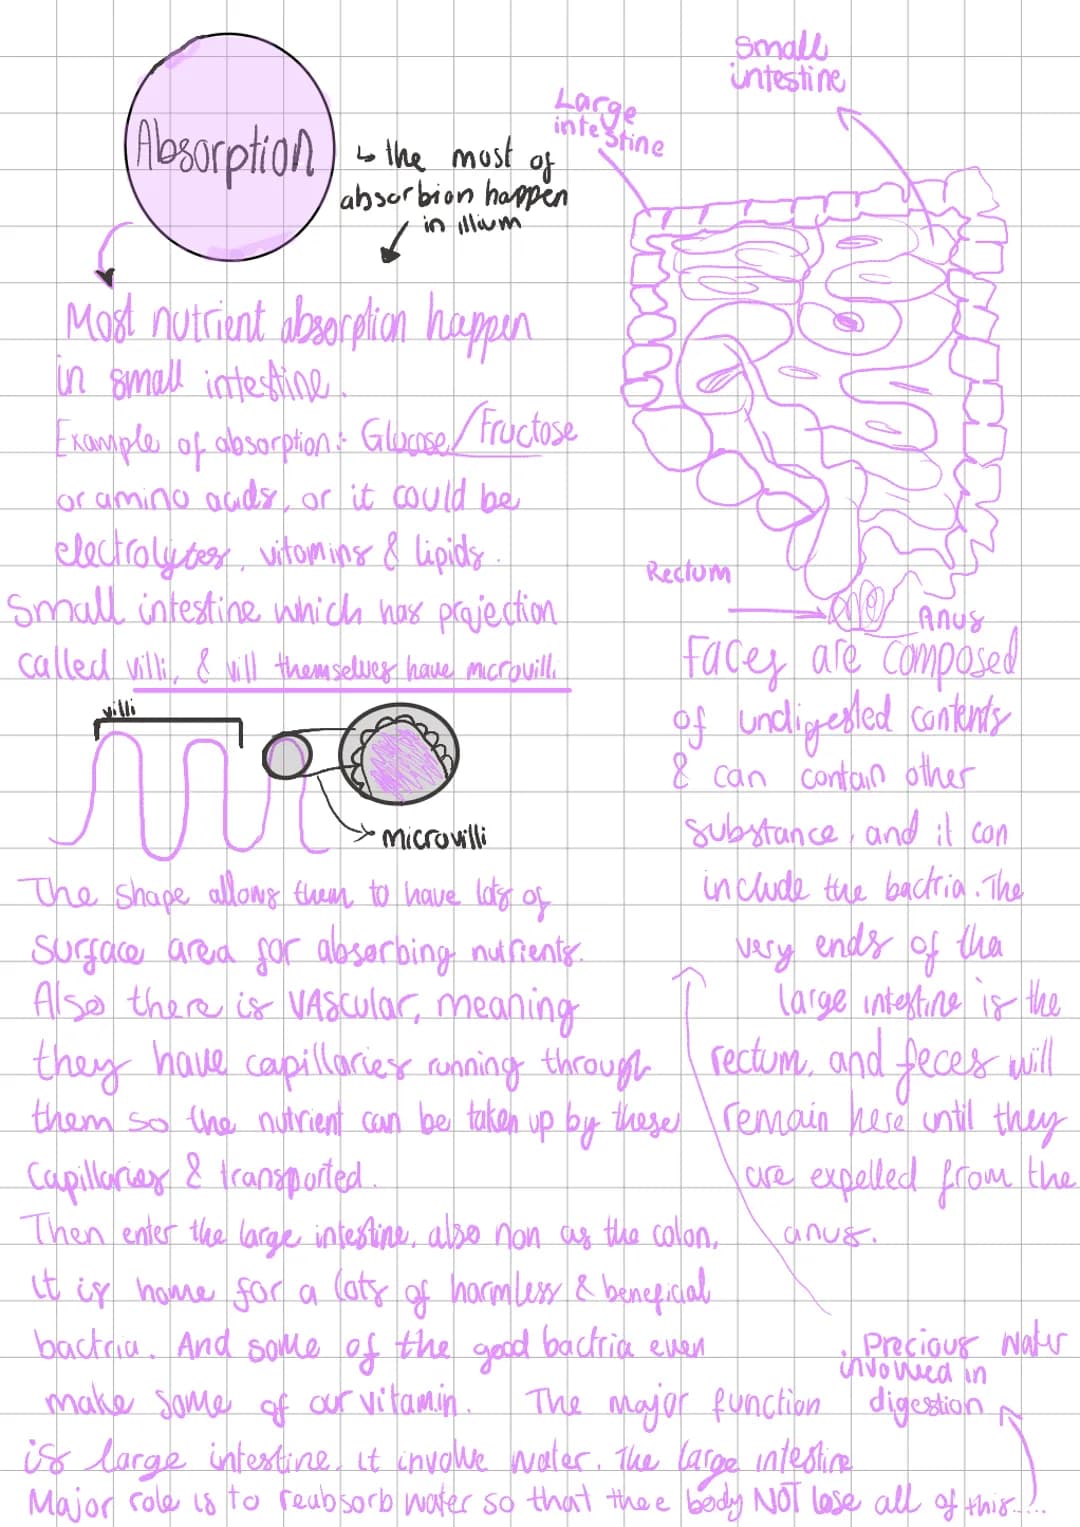 Absorption
↳ the most of
absorbion happen
in illium
Small
intestine
Large
intestine
Most nutrient absorption happen
in small intestine.
Example of absorption:- Glucose/Fructose
or amino acids, or it could be
electrolytes, vitamins & lipids.
Small intestine which has projection
called villi, & vill themselves have microvilli
villi
Microvilli
The shape allows them to have lots of
surface area for absorbing nutrients.
Also there is VAscular, meaning
they have capillaries running through
them so the nutrient can be taken up by these
Capillaries & transported.
Then enter the large intestine, also non as the colon,
it is home for a lots of harmless & beneficial
bactria. And some of the good bactria even
make some of our vitamin. The major function
is large intestine. it involve water. The large intestine
Major role is to reabsorb water so that thee body NOT lose all of this....
Rectum
Anus
Faces are composed
of undigested contents
& can contain other
substance, and it can
include the bactria. The
very ends of tha
large intestine is the
rectum, and feces will
remain here until they
are expelled from the
anus.
Precious water
invovled in
digestion